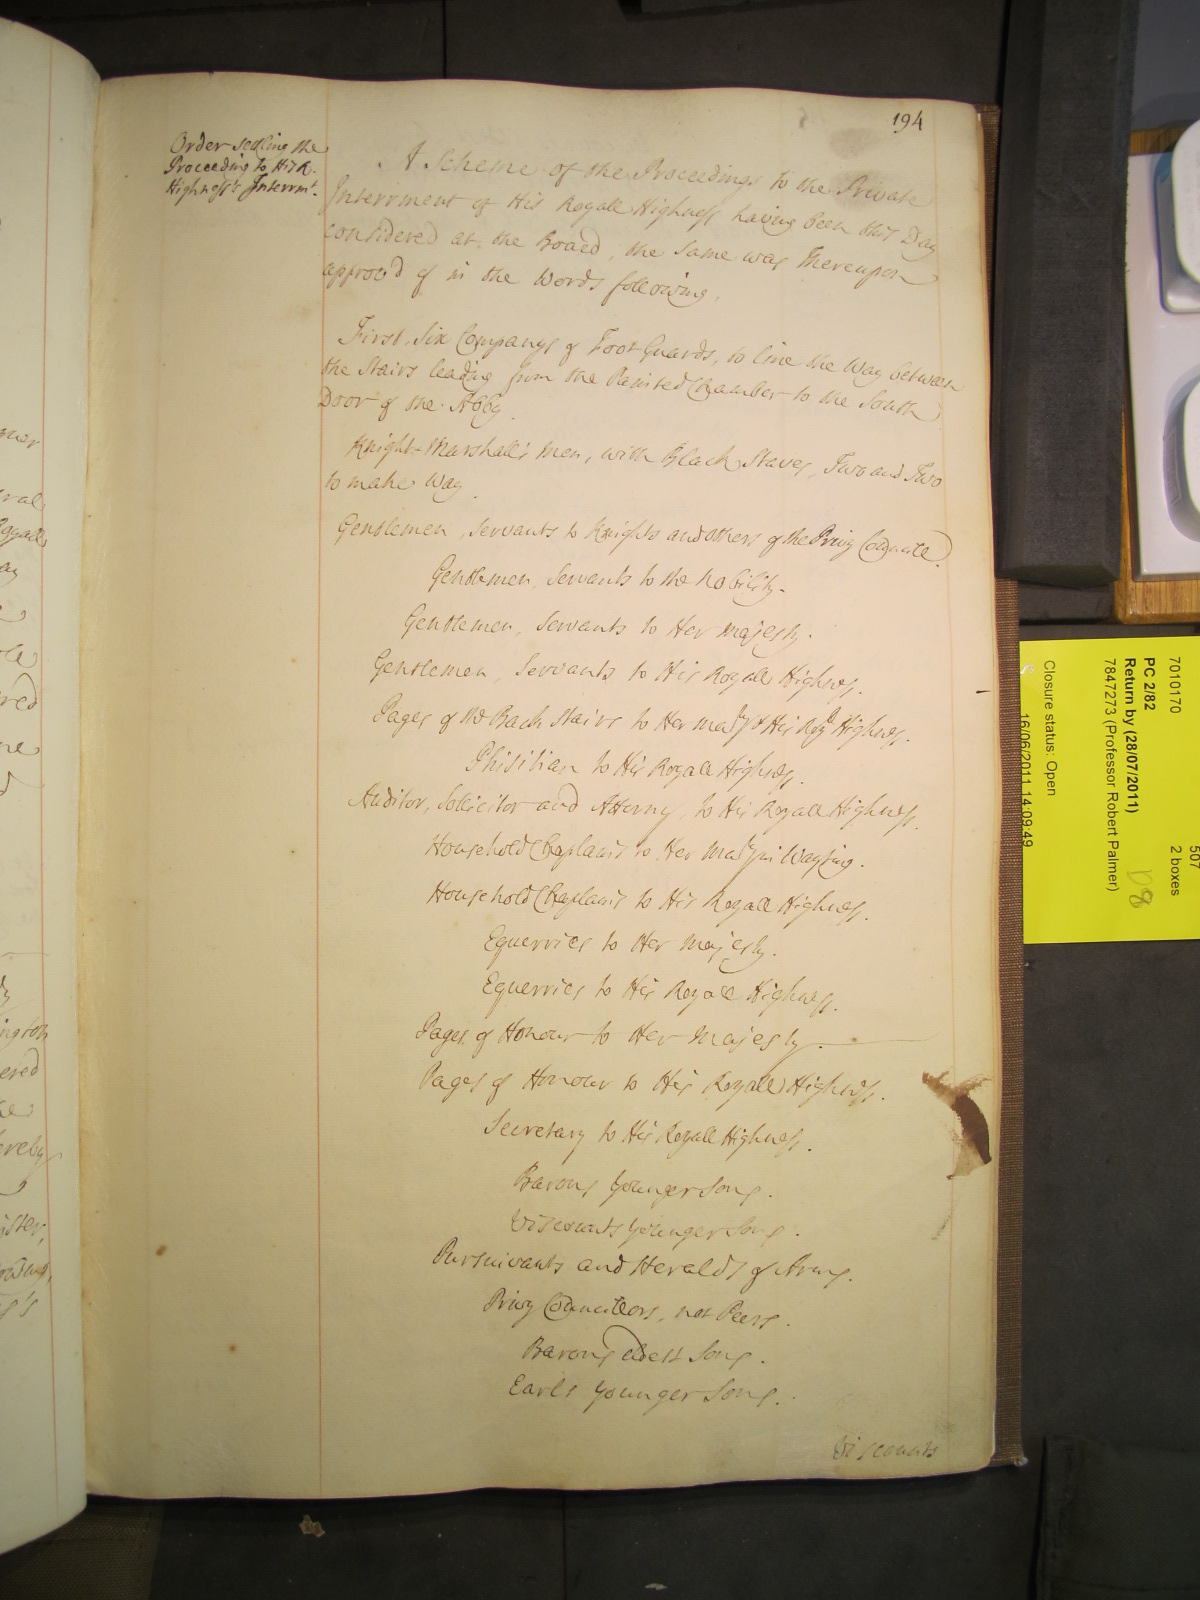 194
Order setling the
Proceeding to His R.
Highness's Interrmt.
A Scheme of the Proceedings to the Private
Interrment of His Royall Highness having been this Day
considered at the Board, the same was Thereupon
approv'd of in the Words following.
First, Six Companys of Foot Guards, to line the Way between
the Stairs leading from the Painted Chamber to the South
Door of the Abby.
Knight-Marshall's Men, with Black Staves, Two and Two
to make Way.
Gentlemen, Servants to Knights and others of the Privy Councill.
Gentlemen, Servants to the Nobility.
Gentlemen, Servants to Her Majesty.
Gentlemen, Servants to His Royall Highness.
Pages of the Back Stairs to Her Maty & His Royll Highness.
Phisitian to His Royall Highness.
Auditor, Sollicitor and Attorny, to His Royall Highness.
Household Chaplains to Her Maty in Wayting.
Household Chaplains to His Royall Highness.
Equerries to Her Majesty.
Equerries to His Royall Highness.
Pages of Honour to Her Majesty.
Pages of Honour to His Royall Highness.
Secretary to His Royall Highness.
Barons Younger Sons.
Viscounts younger Sons.
Pursuivants and Heralds of Arms.
Privy Councillors, not Peers.
Barons eldest Sons.
Earls younger Sons.
Viscounts
507
2 boxes
7010170
PC 2/82
Return by (28/07/2011)
7847273 (Professor Robert Palmer)
D8
Closure status: Open
16/06/2011 14:09:49